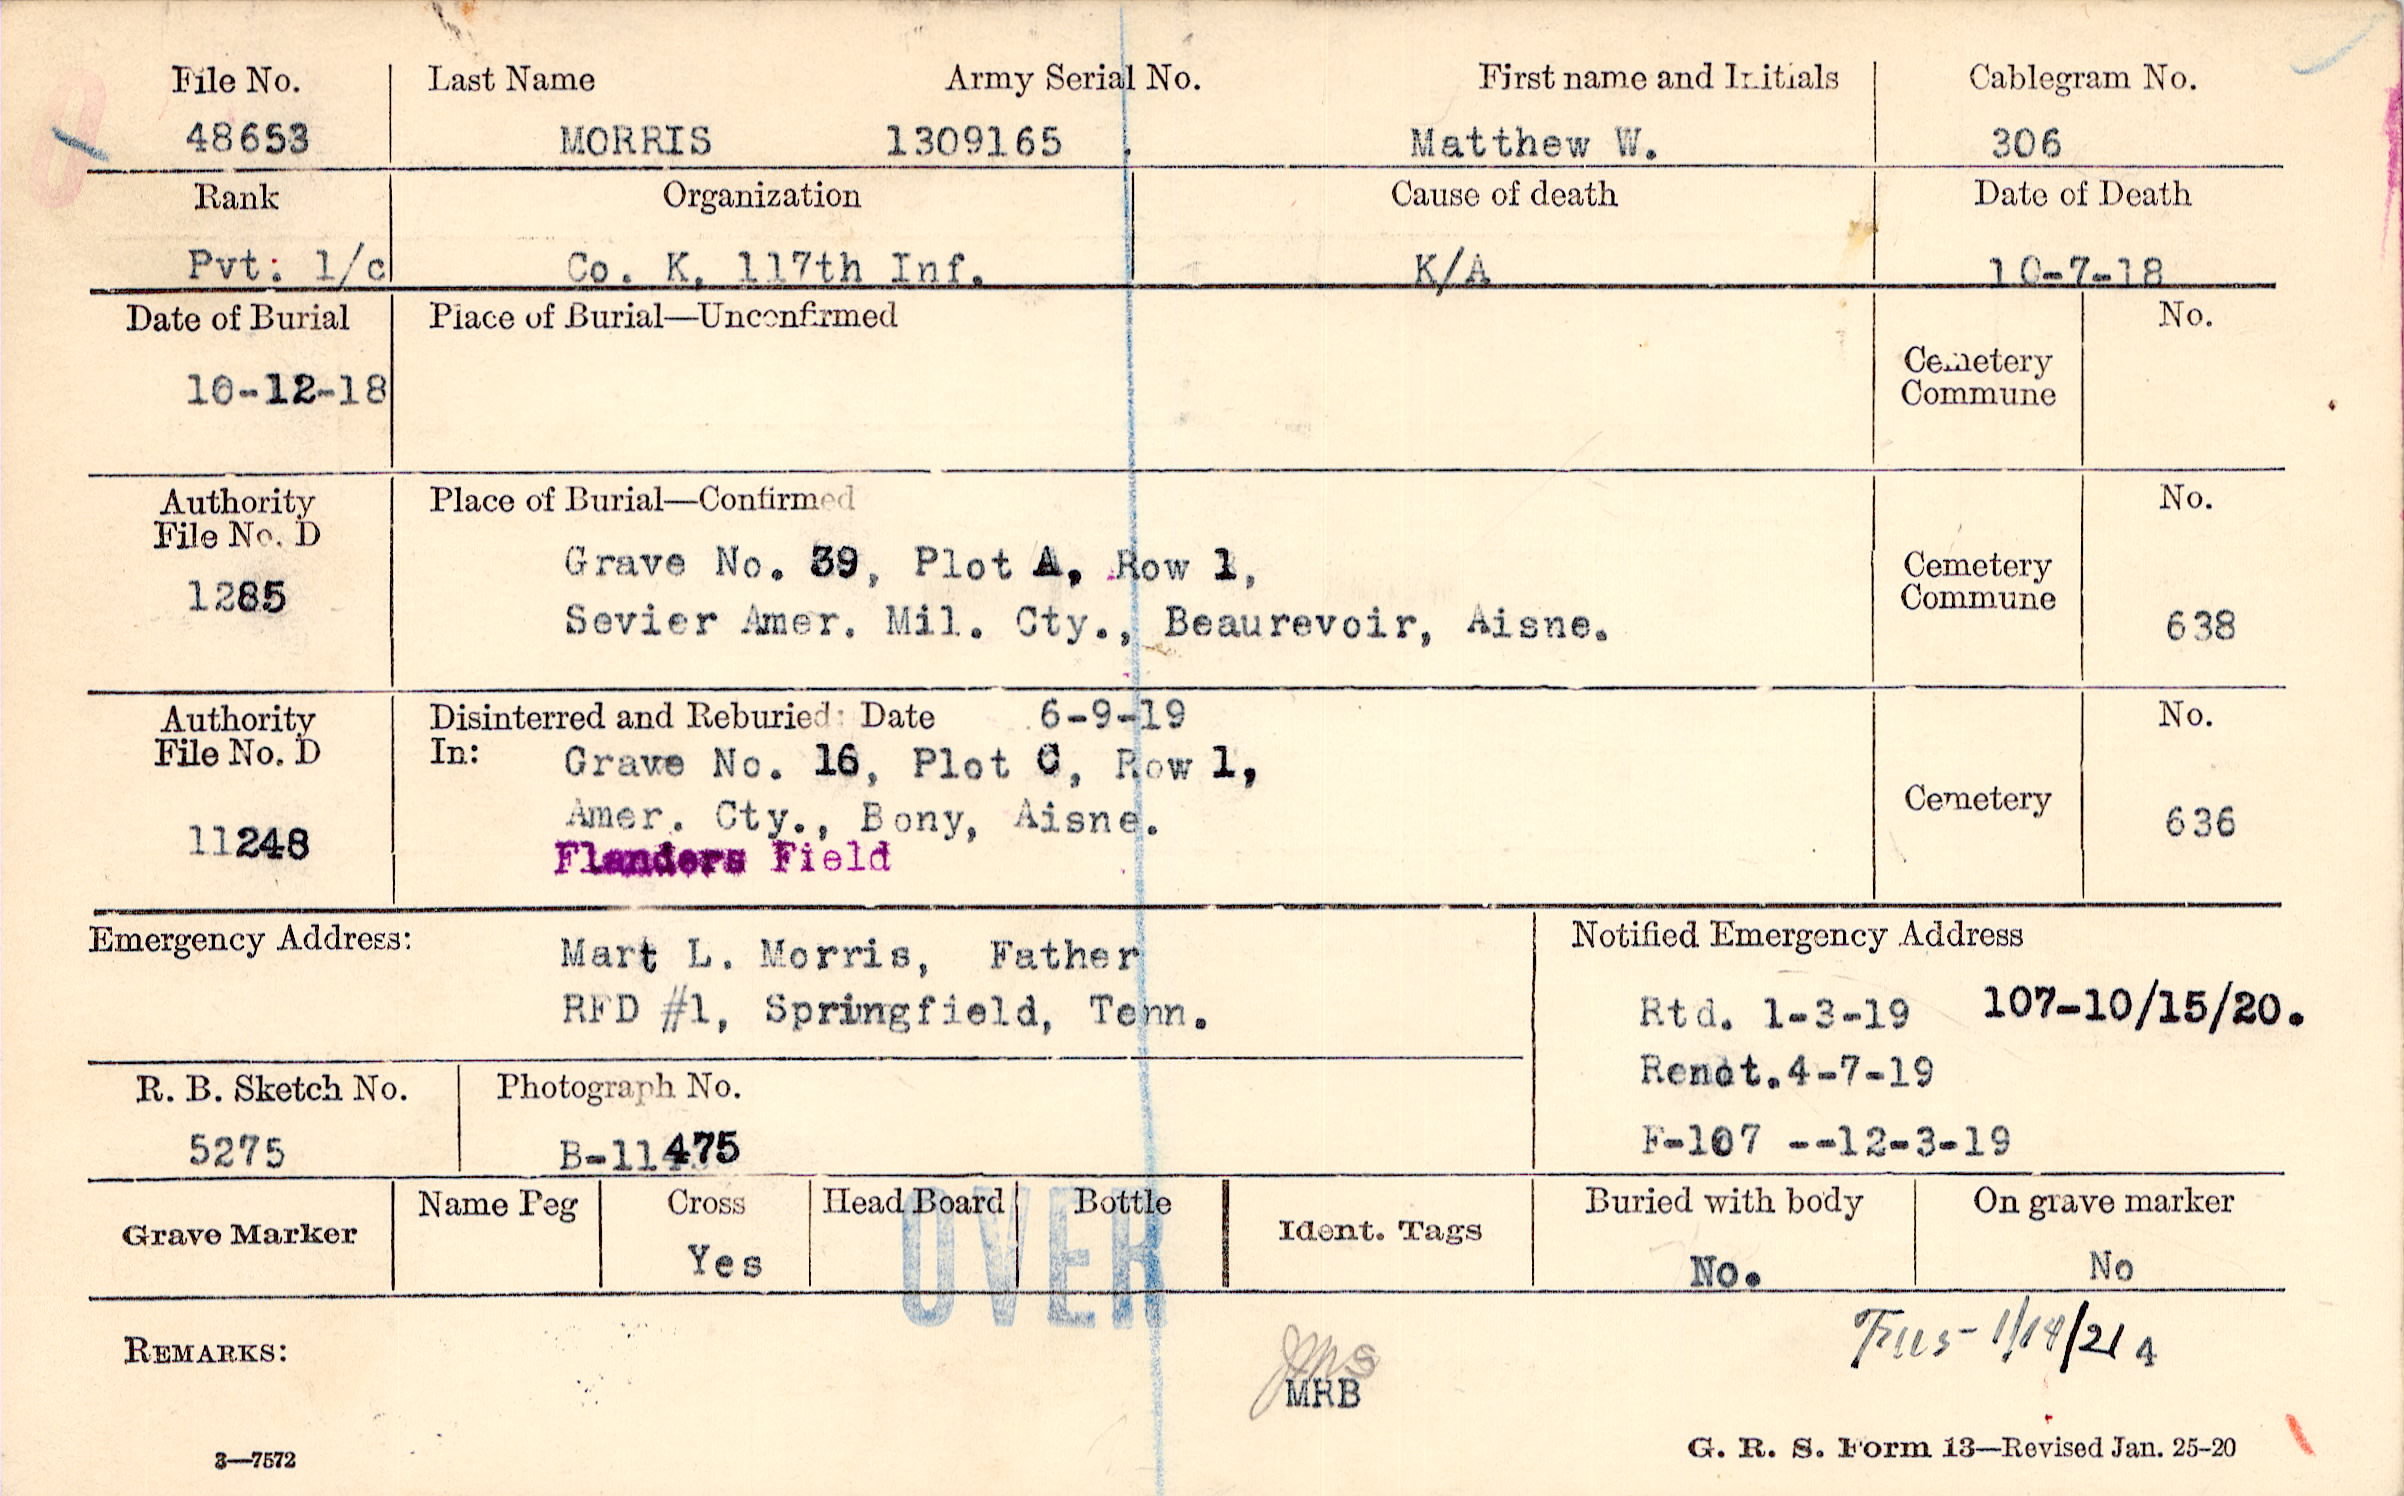 File No. Last Name Army Serial No. First name and Initials Cablegram No.
48653 MORRIS 1309165 Matthew W. 306
Rank Organization Cause of death Date of Death
Pvt. 1/c Co. K, 117th Inf. K/A 10-7-18
Date of Burial Place of Burial—Unconfirmed No.
10-12-18 Cemetery
Commune
Authority Place of Burial—Confirmed No.
File No. D
1285 Grave No. 39, Plot A, Row 1, Cemetery
Commune
Sevier Amer. Mil. Cty., Beaurevoir, Aisne. 638
Authority Disinterred and Reburied: Date 6-9-19 No.
File No. D In: Grave No. 16, Plot C, Row 1,
Cemetery
11248 Amer. Cty., Bony, Aisne. 636
Flanders Field
Emergency Address: Mart L. Morris, Father
RFD #1, Springfield, Tenn.
Notified Emergency Address
Rtd. 1-3-19 107-10/15/20.
4-7-19
F-107 --12-3-19
R. B. Sketch No. Photograph No.
5275 B-11475
Grave Marker Name Peg Cross Head Board Bottle Ident. Tags Buried with body On grave marker
Yes No. No
OVER
REMARKS:
MRB
3—7572 G. R. S. Form 13—Revised Jan. 25-20